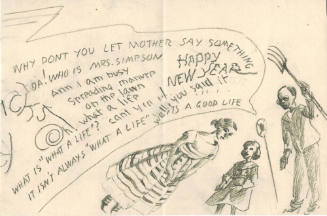 WHY DONT YOU LET MOTHER SAY SOMETHING
DA! WHO IS MRS. SIMPSON
Ann I am busy
Spreading manure
on the lawn
oh what a life
HAPPY
NEW YEAR
well, you said it
WHAT IS "WHAT A LIFE"?
IT ISN'T ALWAYS "WHAT A LIFE"
IS A GOOD LIFE